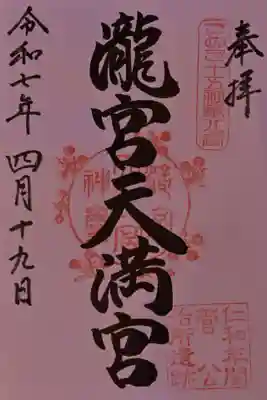 奉拝
瀧宮天満宮
仁和年間
菅公
官所遺跡
令和七年 四月十九日